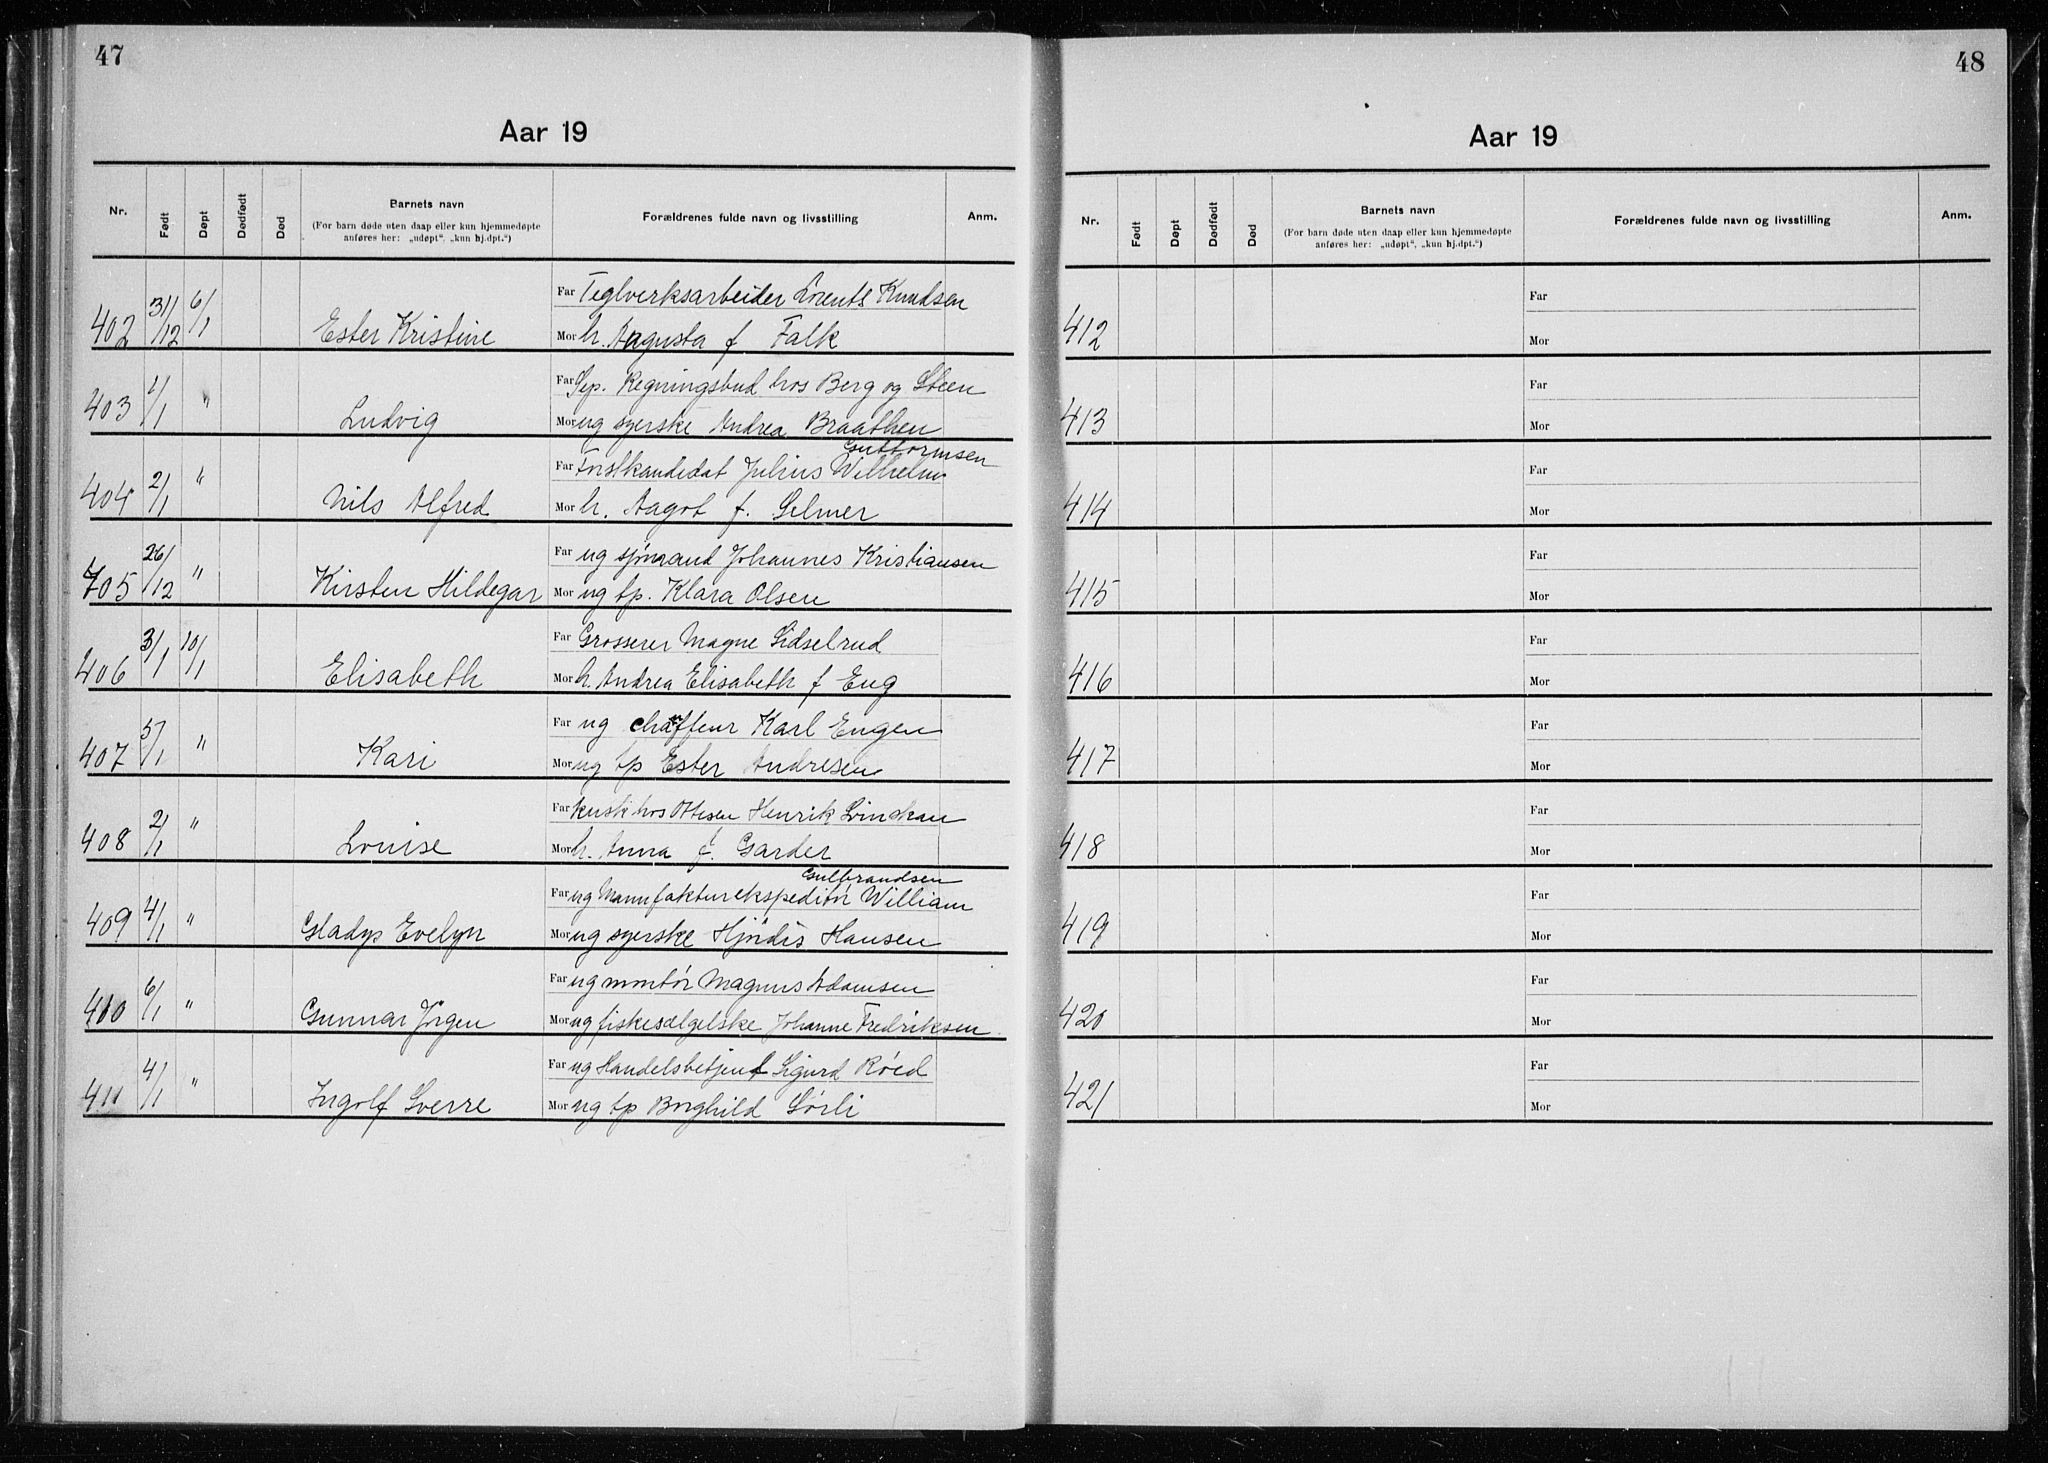 47
Aar 19
Nr. Født Døpt Dødfødt Død Barnets navn Forældrenes fulde navn og livsstilling Anm.
(For barn døde uten daap eller kun hjemmedøpte
anføres her: „udøpt“, „kun hj.dpt.“)
Far Teglverksarbeider Lorents Knudsen
402 31/12 6/1 Ester Kristine Mor h. Augusta f Falk
Far Sep. Regningsbud hos Berg og Steen
403 1/1 " Ludvig Mor ug syerske Andrea Braathen
Guttormsen
Far Forstkandidat Julius Wilhelm
404 2/1 " Nils Alfred Mor h. Aagot f. Selmer
Far ug sjömand Johannes Kristiansen
405 26/12 " Kirsten Hildegar Mor ug tp. Klara Olsen
Far Grosserer Magne Sidselrud
406 3/1 10/1 Elisabeth Mor h. Andrea Elisabeth f Eng
Far ug chauffeur Karl Engen
407 5/1 " Kari Mor ug tp Ester Andresen
Far Kusk hos Ottesen Henrik
408 2/1 " Louise Mor h. Anna f. Garder
Gulbrandsen
Far ug Manufakturekspeditör William
409 4/1 " Gladys Evelyn Mor ug syerske Hjördis Hansen
Far ug montör Magnus Adamsen
410 6/1 " Gunnar Jörgen Mor ug fiskesælgelske Johanne Fredriksen
Far ug Handelsbetjent Sigurd Röed
411 4/1 " Ingolf Sverre Mor ug tp Borghild Sörli
48
Aar 19
Nr. Født Døpt Dødfødt Død Barnets navn Forældrenes fulde navn og livsstilling Anm.
(For barn døde uten daap eller kun hjemmedøpte
anføres her: „udøpt“, „kun hj.dpt.“)
Far
412 Mor
Far
413 Mor
Far
414 Mor
Far
415 Mor
Far
416 Mor
Far
417 Mor
Far
418 Mor
Far
419 Mor
Far
420 Mor
Far
421 Mor